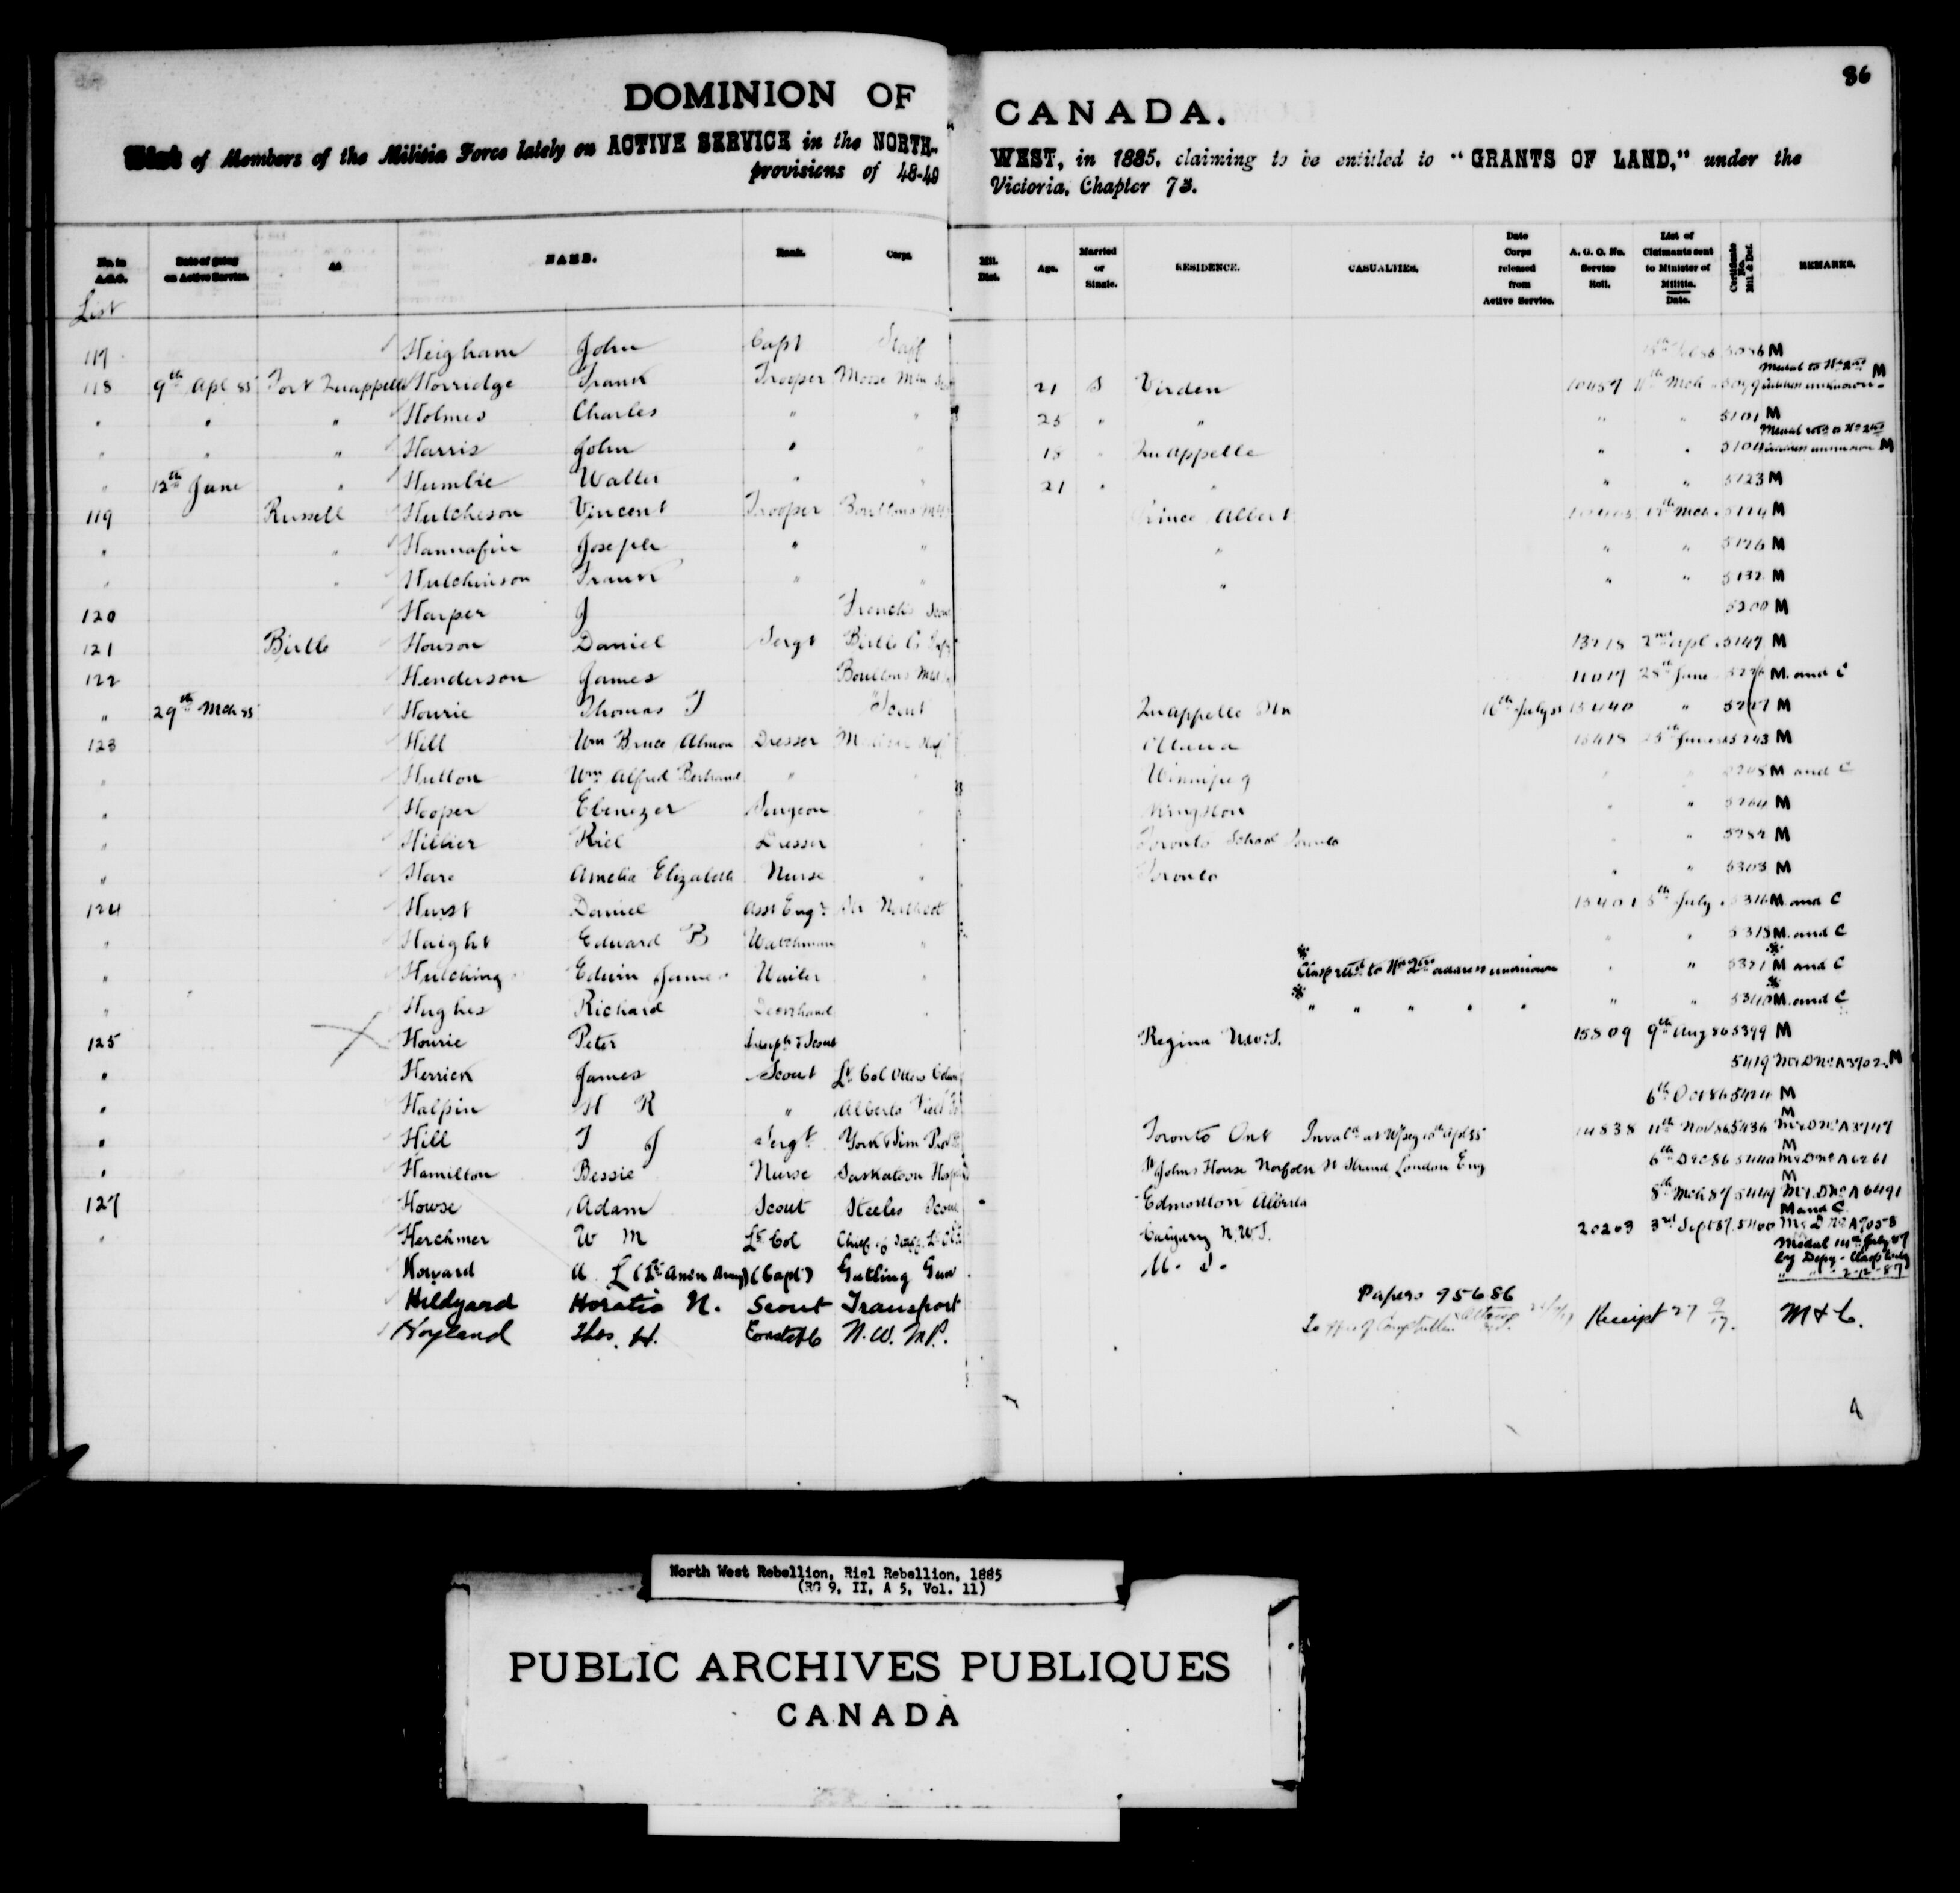 86
DOMINION OF CANADA.
List of Members of the Militia Force lately on ACTIVE SERVICE in the NORTH-WEST, in 1885, claiming to be entitled to "GRANTS OF LAND," under the
provisions of 48-49 Victoria, Chapter 73.
No. in A.G.O. List | Date of going on Active Service. | At | NAME. | Rank. | Corps. | Mil. Dist. | Age. | Married or Single. | RESIDENCE. | CASUALTIES. | Date Corps released from Active Service. | A. G. O. No. Service Roll. | List of Claimants sent to Minister of Militia. Date. | Certificate No. Mil. & Def. | REMARKS.
117 Heigham John Capt Staff 5086 M
118 9th Apl 85 Fort Quappelle Horridge Frank Trooper Moose Mtn 21 S Virden 10487 11th Mch 5099 Medal to address unknown M
" " " Holmes Charles " " 25 " " " " 5101 M
" " " Harris John " " 18 " Quappelle " " 5104 address unknown M
" 12th June " Humbie Walter " " 21 " " " " 5123 M
119 Russell Hutcheson Vincent Trooper Boultons Prince Albert Mch 5124 M
" " Hannafin Joseph " " " " " 5126 M
" " Hutchinson Frank " " " " " 5132 M
120 Harper J French's Scouts 5200 M
121 Birtle Houson Daniel Sergt Birtle Co 13218 2nd Apl 5147 M
122 Henderson James Boultons 11017 28th June M. and C
" 29th Mch 85 Hourie Thomas T Scout Quappelle Stn 16th July 85 13440 " 5227 M
123 Hill Wm Bruce Almon Dresser Medical Staff Ottawa 5243 M
" Hutton Wm Alfred Bertrand " " Winnipeg M and C
" Hooper Ebenezer Surgeon " Kingston " " 5264 M
" Hillier Dresser " Toronto School Toronto " " 5282 M
" Hare Amelia Elizabeth Nurse " Toronto " " 5303 M
124 Hurst Daniel Asst Engr Str Northcote 15401 5th July 5316 M and C
" Haight Edward B Watchman " " " 5318 M. and C
" Hutchings Edwin James Waiter " * Clasp retd to address unknown " " 5321 * M and C
" Hughes Richard Deckhand " * " " " " " " " 5340 * M. and C
125 Hourie Peter Scout Regina N.W.T. 15809 9th Aug 86 5399 M
" Herrick James Scout Lt Col Otters Column 5419 M & D No A3702. M
" Halpin H R " Alberta Field 6th Oct 86 5424 M
" Hill T J Sergt York & Sim Prov Toronto Ont 14838 11th Nov 86 5436 M M & D No A3747
" Hamilton Bessie Nurse Saskatoon Hospital St Johns House Norfolk St Strand London Eng 6th Dec 86 5440 M M & D No A6261
127 Howse Adam Scout Steeles Scouts Edmonton Alberta 8th Mch 87 5449 M M & D No A6491
" Herchmer W M Lt Col Chief of Staff Calgary N.W.T. 20203 3rd Sept 87 5400 M and C M & D No A7058
Howard A. L (Lt Amcn Army) (Capt) Gatling Gun U. S. Medal 14th July 87 by Depy - Clasp 2-12-87
Hildyard Horatio N. Scout Transport Papers 95686
Hoyland Thos. H. Constble N. W. M P. Receipt 27 9/17. M & C.
North West Rebellion, Riel Rebellion, 1885
(RG 9, II, A 5, Vol. 11)
PUBLIC ARCHIVES PUBLIQUES
CANADA